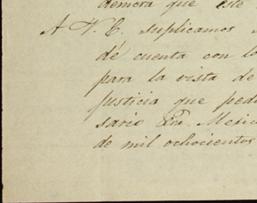 demora que este
A V. E. suplicamos
dé cuenta con lo
para la vista de
justicia que pedi
sario En Mexic
de mil ochocientos